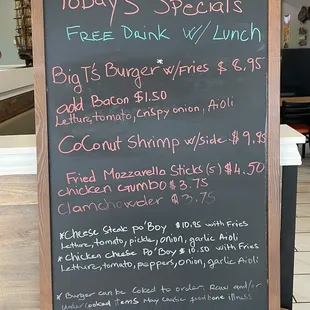 Today's Specials
Free Drink w/ Lunch
Big T's Burger* w/fries $8.95
add Bacon $1.50
Lettuce, tomato, crispy onion, Aioli
Coconut Shrimp w/side $9.95
Fried Mozzarella Sticks (5) $4.50
chicken Gumbo $3.75
Clamchowder $3.75
*Cheese Steak po'Boy $10.95 with Fries
Lettuce, tomato, pickle, onion, garlic Aioli
*Chicken cheese Po'Boy $10.50 with Fries
Lettuce, tomato, peppers, onion, garlic Aioli
*Burger can be Coked to order. Raw and/or
undercooked items May cause foodborne illness